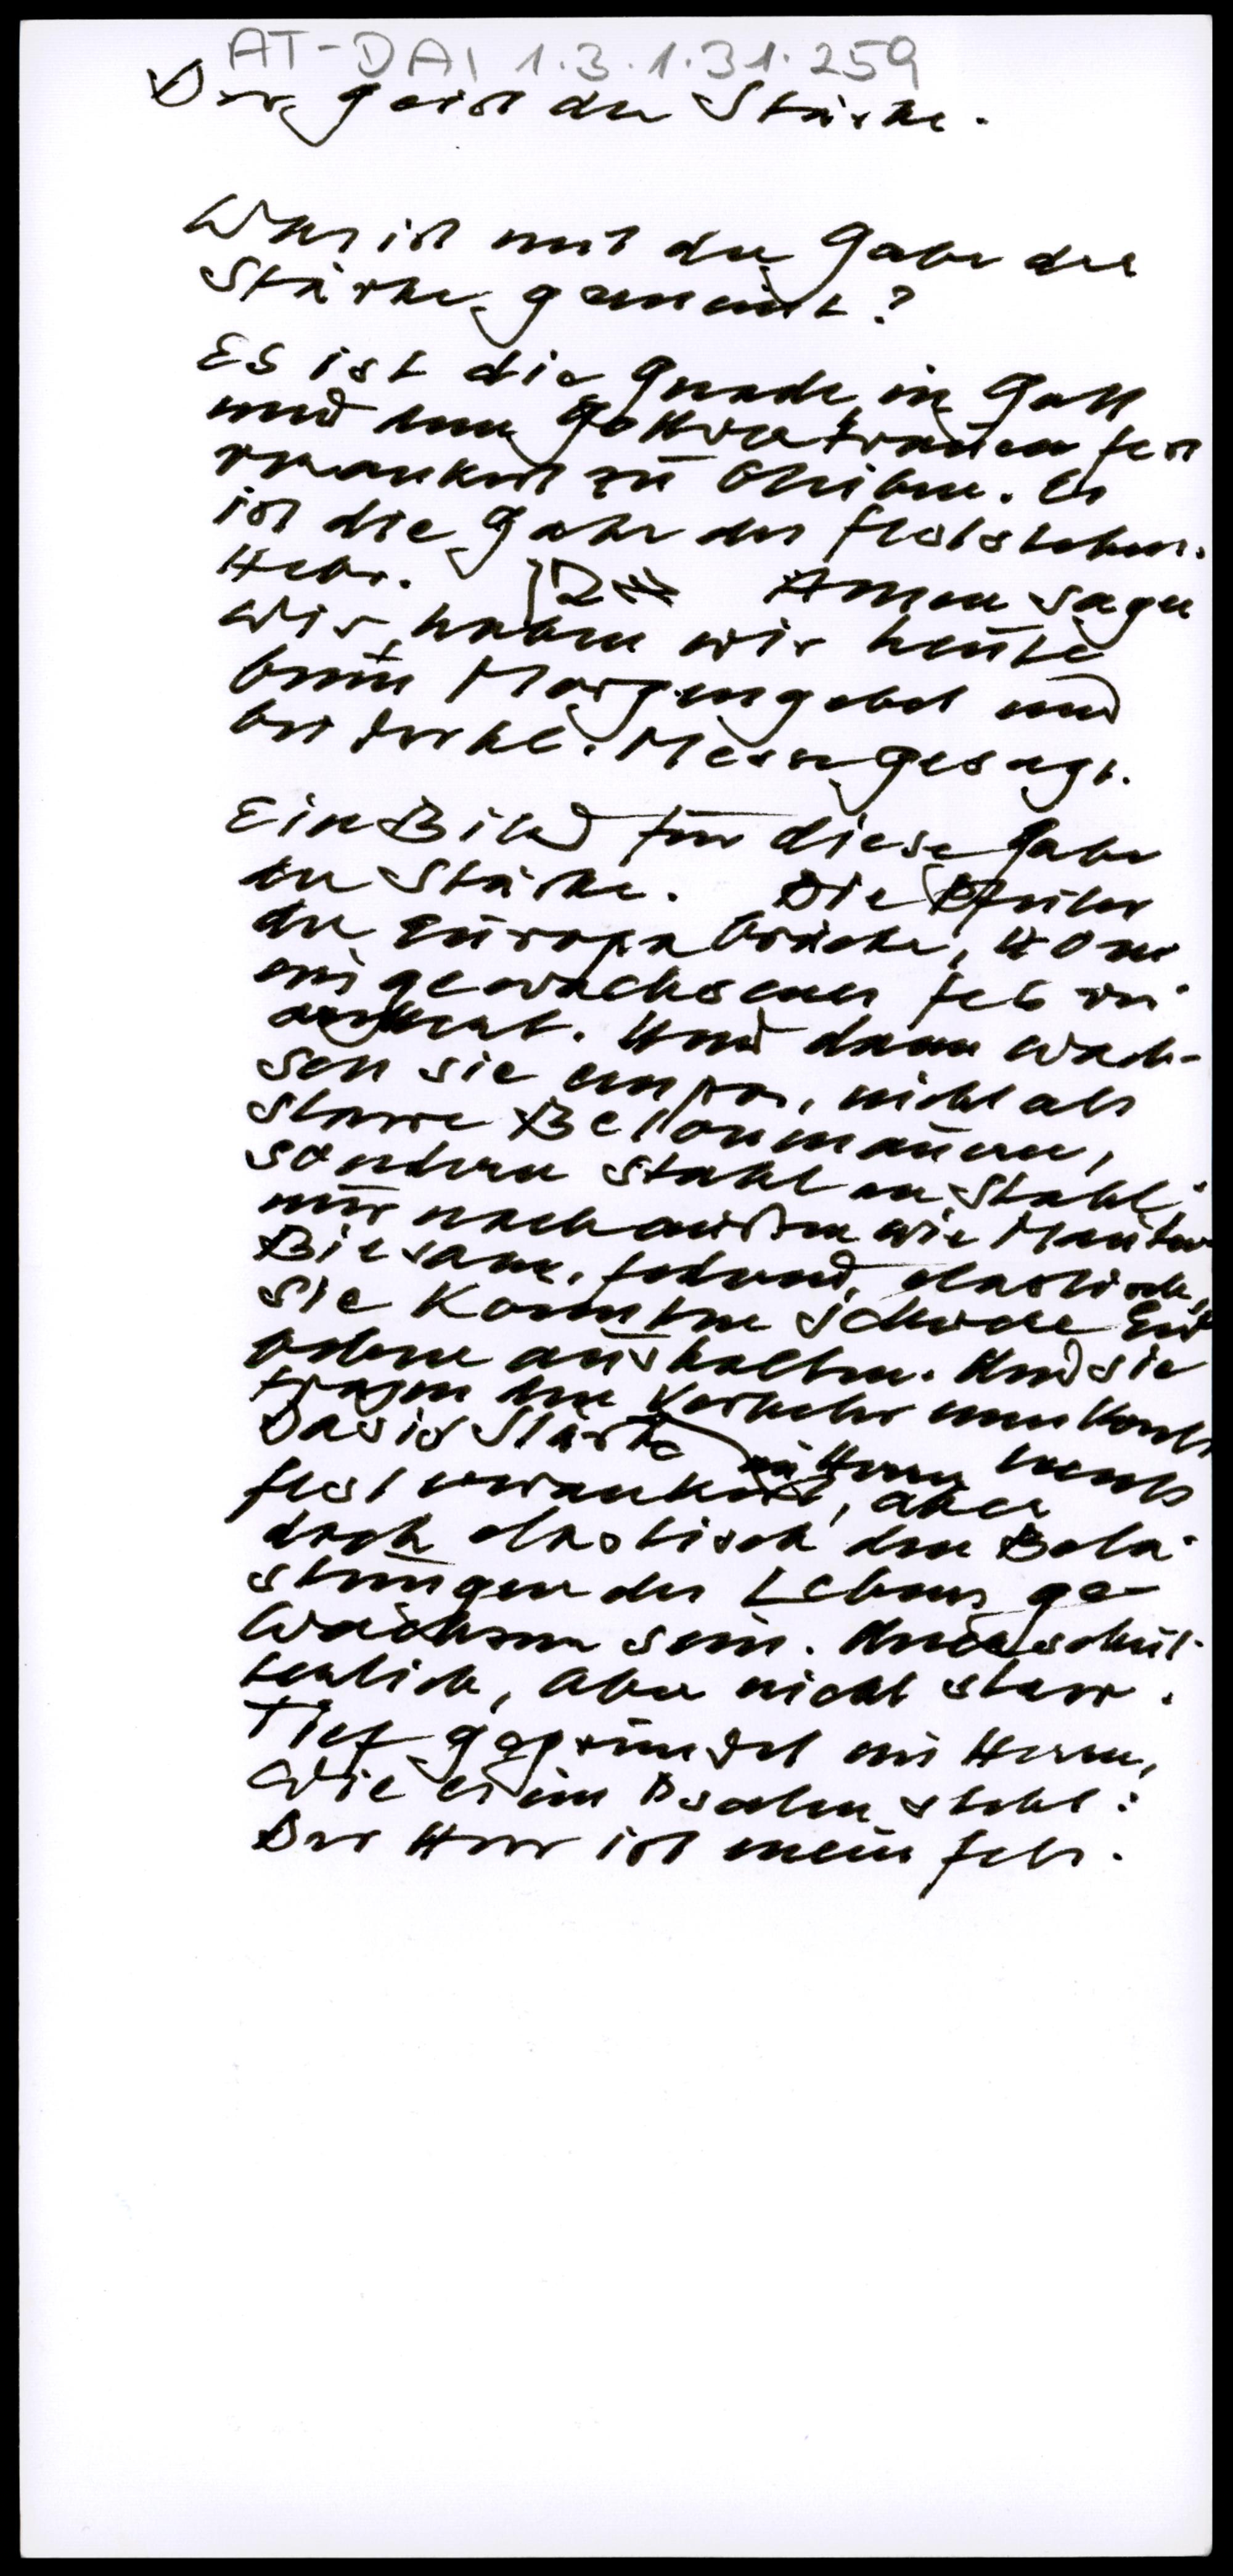 AT-DAI 1.3.1.31.259
Der Geist der Stärke.
Was ist mit der Gabe der
Stärke gemeint?
Es ist die Gnade, in Gott
und dem Gottvertrauen fest
verankert zu bleiben. Es
ist die Gabe des Feststehens.
Hebr. אמן Amen sagen
Wir haben wir heute
beim Morgengebet und
bei der hl. Messe gesagt.
Ein Bild für diese Gabe
der Stärke. Die Pfeiler
der Europabrücke, 40 m
im gewachsenen Fels ver-
ankert. Und dann wach-
sen sie empor, nicht als
starre Betonmauern,
sondern Stahl an Stahl,
nur nach außen wie Mauern
Biegsam, federnd, elastisch,
sie könnten schwere Erd
beben aushalten. Und sie
tragen den Verkehr
Das ist Stärke im Herrn
fest verankert, aber
doch elastisch den Bela-
stungen des Lebens ge-
wachsen sein. Unerschüt-
terlich, aber nicht starr.
Tief gegründet im Herrn,
Wie es im Psalm steht:
Der Herr ist mein Fels.